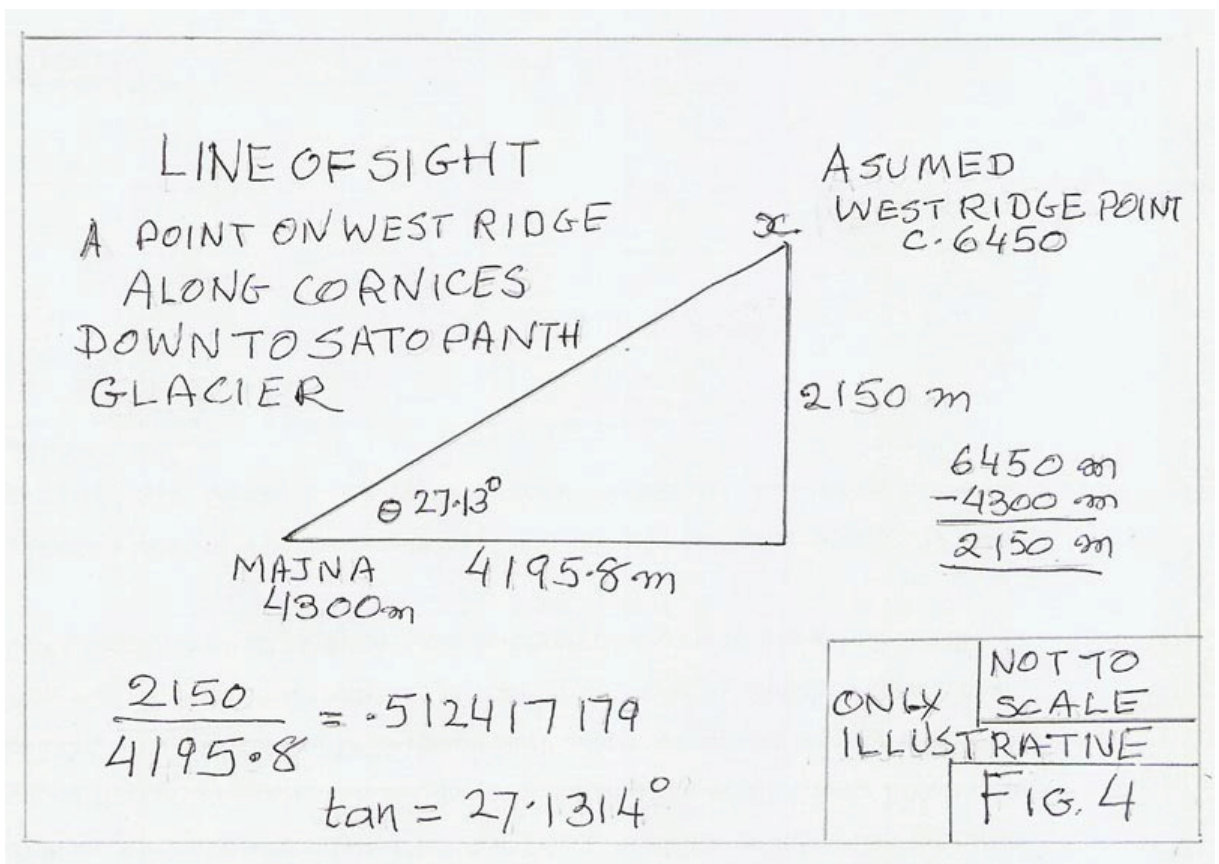 LINE OF SIGHT
A POINT ON WEST RIDGE
ALONG CORNICES
DOWN TO SATOPANTH
GLACIER
x
ASUMED
WEST RIDGE POINT
C. 6450
2150 m
6450 m
-4300 m
2150 m
θ 27.13°
MAJNA
4300m
4195.8 m
2150
4195.8
= .512417179
tan = 27.1314°
ONLY
ILLUSTRATIVE
NOT TO
SCALE
FIG. 4